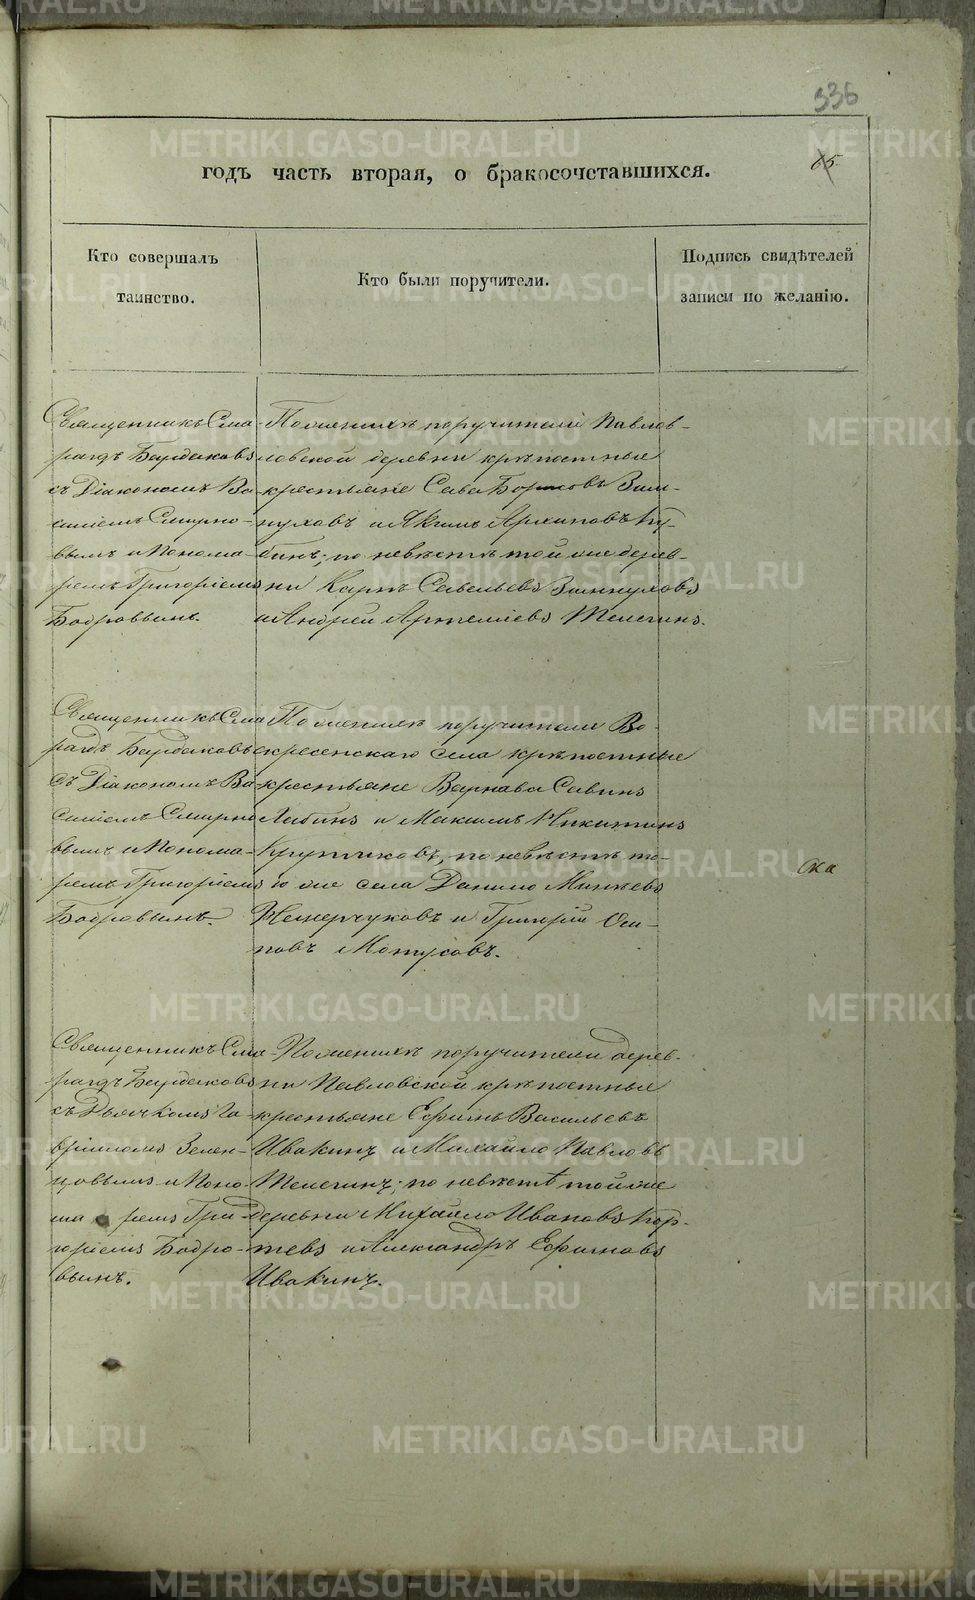 336
65
годъ часть вторая, о бракосочетавшихся.
Кто совершалъ
таинство.
Кто были поручители.
Подпись свидѣтелей
записи по желанію.
Священникъ Сма-
рагдъ Бардаковъ
съ Діакономъ Ва
силіемъ Смирно-
вымъ и Понома-
ремъ Григоріемъ
Бобровымъ.
По женихѣ поручители Павлов-
ловской деревни крѣпостные
крестьяне Сава Борисовъ Зим-
нуховъ и Якимъ Архиповъ
по невѣстѣ той же дерев-
ни Карпъ Савельевъ Зимнуховъ
и Андрей Артеміевъ Телегинъ.
Священникъ Сма
рагдъ Бардаковъ
съ Діакономъ Ва-
силіемъ Смирно
вымъ и Понома-
ремъ Григоріемъ
Бобровымъ.
По женихѣ поручители Во-
скресенскаго села крѣпостные
крестьяне Варнава Савинъ
Лабинъ и Максимъ Никитинъ
Крутиковъ, по невѣстѣ то-
го же села Данило Минѣевъ
и Григорій Оси-
повъ
ска
Священникъ Сма-
рагдъ Бардаковъ
съ Дьячкомъ Га-
вріиломъ Зелен-
цовымъ и Поно-
ма ремъ Гри-
горіемъ Бобро-
вымъ.
По женихѣ поручители дерев-
ни Павловской крѣпостные
крестьяне Ефимъ Васильевъ
Ивакинъ и Михайло Павловъ
Телегинъ; по невѣстѣ той же
деревни Михайло Ивановъ Кор-
тевъ и Александръ Ефимовъ
Ивакинъ.
METRIKI.GASO-URAL.RU